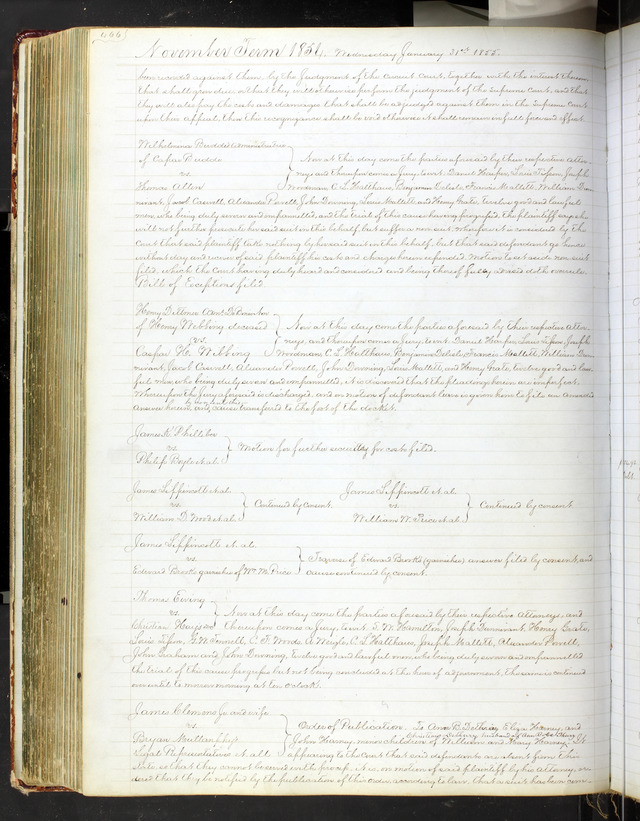 666
November Term 1854. Wednesday January 31st 1855.
against them, by the judgment of the Circuit Court, together with the interest thereon
that shall grow due or that they will otherwise perform the judgment of the Supreme Court, and that
they will also pay the costs and damages that shall be adjudged against them in the Supreme Court
upon their appeal, then this recognizance shall be void otherwise it shall remain in full force and effect.
Wilhelmina Budde
of Caspar Budde
vs.
Thomas Allen
Now at this day come the parties aforesaid by their respective Attor-
neys and thereupon comes a jury to wit: Daniel Harper, Louis Tifson, Joseph
Woodman, C. L. Hatthaus, Benjamin Delisle, Francis Mallett, William Dun-
nivant, Jacob Caswell, Alexander Powell, John Downing, Louis Mallett, and Henry Grate, twelve good and lawful
men, who being duly sworn and impannelled, and the trial of this cause having progressed, the plaintiff says he
will not further prosecute his said suit in this behalf but suffer a non suit. Wherefore it is considered by the
Court that said plaintiff take nothing by his said suit in this behalf, but that said defendant go hence
without day and recover of said plaintiff his costs and charges herein expended. Motion to set aside non suit
filed, which the Court having duly heard and considered and being thereof fully advised doth overrule.
Bill of Exceptions filed.
Henry Dittmer
of Henry Webbing deceased
vs.
Caspar H. Webbing
Now at this day come the parties aforesaid by their respective Attor-
neys, and thereupon comes a jury, to wit: Daniel Harper, Louis Tifson, Joseph
Woodman, C. L. Hatthaus, Benjamin Delisle, Francis Mallett, William Dun-
nivant, Jacob Caswell, Alexander Powell, John Downing, Louis Mallett, and Henry Grate, twelve good and law-
ful men, who being duly sworn and impannelled, it is discovered that the pleadings herein are imperfect.
Whereupon the jury aforesaid is discharged, and on motion of defendant leave is given him to file an amended
answer herein, and cause transferred to the foot of the docket.
James H. Phillibar
vs.
Philip Boyle et al.
Motion for further security for costs filed.
James Lippincott et al.
vs.
William D. Wood et al.
Continued by consent.
James Lippincott et al.
vs.
William W. Price et al.
Continued by consent.
James Lippincott et al.
vs.
Edward Brooks garnishee of Wm. M. Price
of Edward Brooks (garnishee) answer filed by consent, and
cause continued by consent.
Thomas Ewing
vs.
Christian Hays
Now at this day come the parties aforesaid by their respective Attorneys, and
thereupon comes a jury, to wit: S. W. Hamilton, Joseph Dunnivant, Henry Grate,
Louis Tifson, C. F. Woods, C. L. Hatthaus, Joseph Mallett, Alexander Powell,
John Graham and John Downing, twelve good and lawful men, who being duly sworn and impannelled
the trial of this cause progress but not being concluded at the hour of adjournment, the same is continued
over until to morrow morning at ten o'clock.
James Clemens Jr. and wife
vs.
Bryan Mullanphy's
Legal Representatives et al.
Order of Publication. To Ann B. Eliza Harney, and
John Harney, minor children of William and Mary Harney. It
appearing to the Court that said defendants are absent from this
State so that they cannot be served with process, it is on motion of said plaintiff by his Attorney, or-
dered that they be notified by the publication of this order according to law. That a suit has been com-